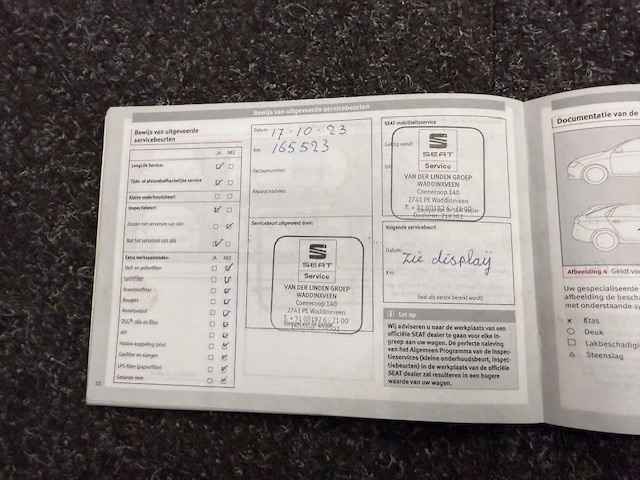 Bewijs van uitgevoerde servicebeurten
Bewijs van uitgevoerde
servicebeurten
JA NEE
LongLife Service:
Tijds- of afstandsafhankelijke service
Kleine onderhoudsbeurt
Inspectiebeurt
Zonder het verversen van olie
Met het verversen van olie
Extra werkzaamheden: JA NEE
Stof- en pollenfilter
Luchtfilter
Brandstoffilter
Bougies
Remvloeistof
DSG®-olie en filter
ATF
Haldex-koppeling (olie)
Gasfilter en slangen
LPG-filter (papierfilter)
Getande riem
Datum: 17-10-23
Km: 165523
Servicebeurt uitgevoerd door:
SEAT
Service
VAN DER LINDEN GROEP
WADDINXVEEN
Coenecoop 140
2741 PE Waddinxveen
T. +31 (0)182 6 - 21 00
SEAT mobiliteitsservice
Geldig vanaf:
SEAT
Service
VAN DER LINDEN GROEP
WADDINXVEEN
Coenecoop 140
2741 PE Waddinxveen
Volgende servicebeurt
Datum:
Zie display
Km:
(wat als eerste bereikt wordt)
Let op
Wij adviseren u naar de werkplaats van een
officiële SEAT dealer te gaan voor elke in-
greep aan uw wagen. De perfecte naleving
van het Algemeen Programma van de Inspec-
tieservices (kleine onderhoudsbeurt, inspec-
tiebeurten) in de werkplaats van de officiële
SEAT dealer zal resulteren in een hogere
waarde van uw wagen.
Documentatie van de
Afbeelding 4 Geldt voo
Uw gespecialiseerde
afbeelding de besch
met onderstaande s
× Kras
○ Deuk
□ Lakbeschadigi
△ Steenslag